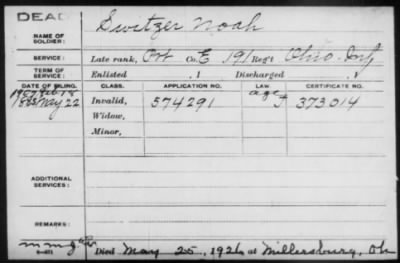 DEAD
NAME OF SOLDIER: Switzer Noah
SERVICE: Late rank, Co. E 191 Reg't Ohio Inf
TERM OF SERVICE: Enlisted , 1 Discharged , 1
DATE OF FILING. CLASS. APPLICATION NO. LAW CERTIFICATE NO.
1907 Feb 18 age
May 22 Invalid, 574291 373014
Widow,
Minor,
ADDITIONAL SERVICES:
REMARKS:
Died May 25, 1926 at Millersburg, Oh